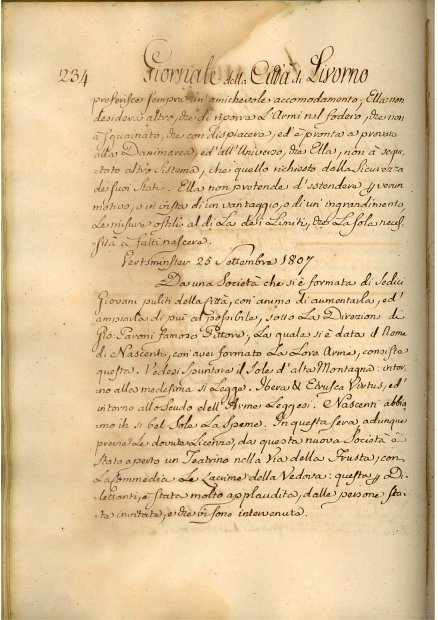 234 Giornale della Città di Livorno
preferisce sempre un'amichevole accomodamento; Ella non
desidera altro, che di riporre l'Armi nel fodero, che non
à sguainato, che con dispiacere, ed è pronta a provare
alla Danimarca, ed'all'Universo, che Ella, non à
tato altro Sistema, che quello richiesto dalla Sicurezza
de suoi Stati. Ella non pretende d'estendere p verun
motivo, o in vista di un vantaggio, o di un ingrandimento
Le misure ostili al di Là dei Limiti, che La sola neces=
sità à fatti nascere.
Vertsminster 25 Settembre 1807
Da una Società che si è formata di Sedici
Giovani puliti della Città, con'animo di aumentarla, ed'
ampiarla di più al possibile, sotto La Direzione di
Gio: Paroni famoso Pittore, La quale si è data il Nome
di Nascenti, con'aver formato La Loro Arme, consiste
questa. Vedesi Spuntare il Sole d'alta Montagna: intor
no alla medesima si Legge. Ibera & Etrusca Virtus, ed'
intorno allo Scudo dell'Arme Leggesi. Nascenti abbia
mo in si bel Sole La Speme. In questa sera adunque
previe Le dovute Licenze, da questa nuova Società è
Stato aperto un Teatrino nella Via della Frusta, con
La Commedia Le Lacrime della Vedova: questa p Di=
lettanti, è stata molto applaudita, dalle persone sta=
te invitate, e che vi sono intervenute.